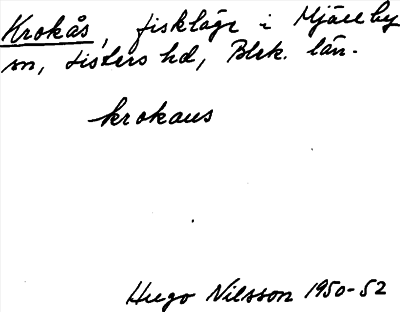 Krokås, fiskläge i Mjällby
sn, Listers hd, Blek. län.
krokaus
Hugo Nilsson 1950-52